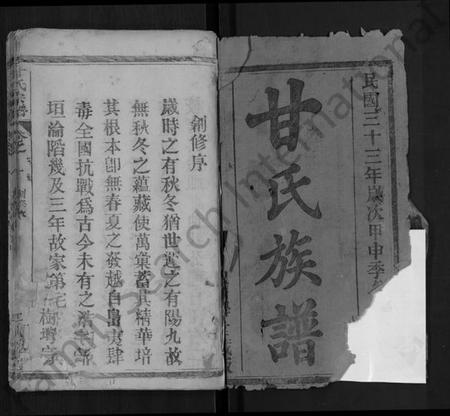 民國三十三年歲次甲申季冬
甘氏族譜
創修序
歲時之有秋冬猶世運之有陽九故
無秋冬之蘊藏使萬彙蓄其精華培
其根本卽無春夏之發越自島夷肆
毒全國抗戰為古今未有之浩刧新
垣淪陷幾及三年故家第宅